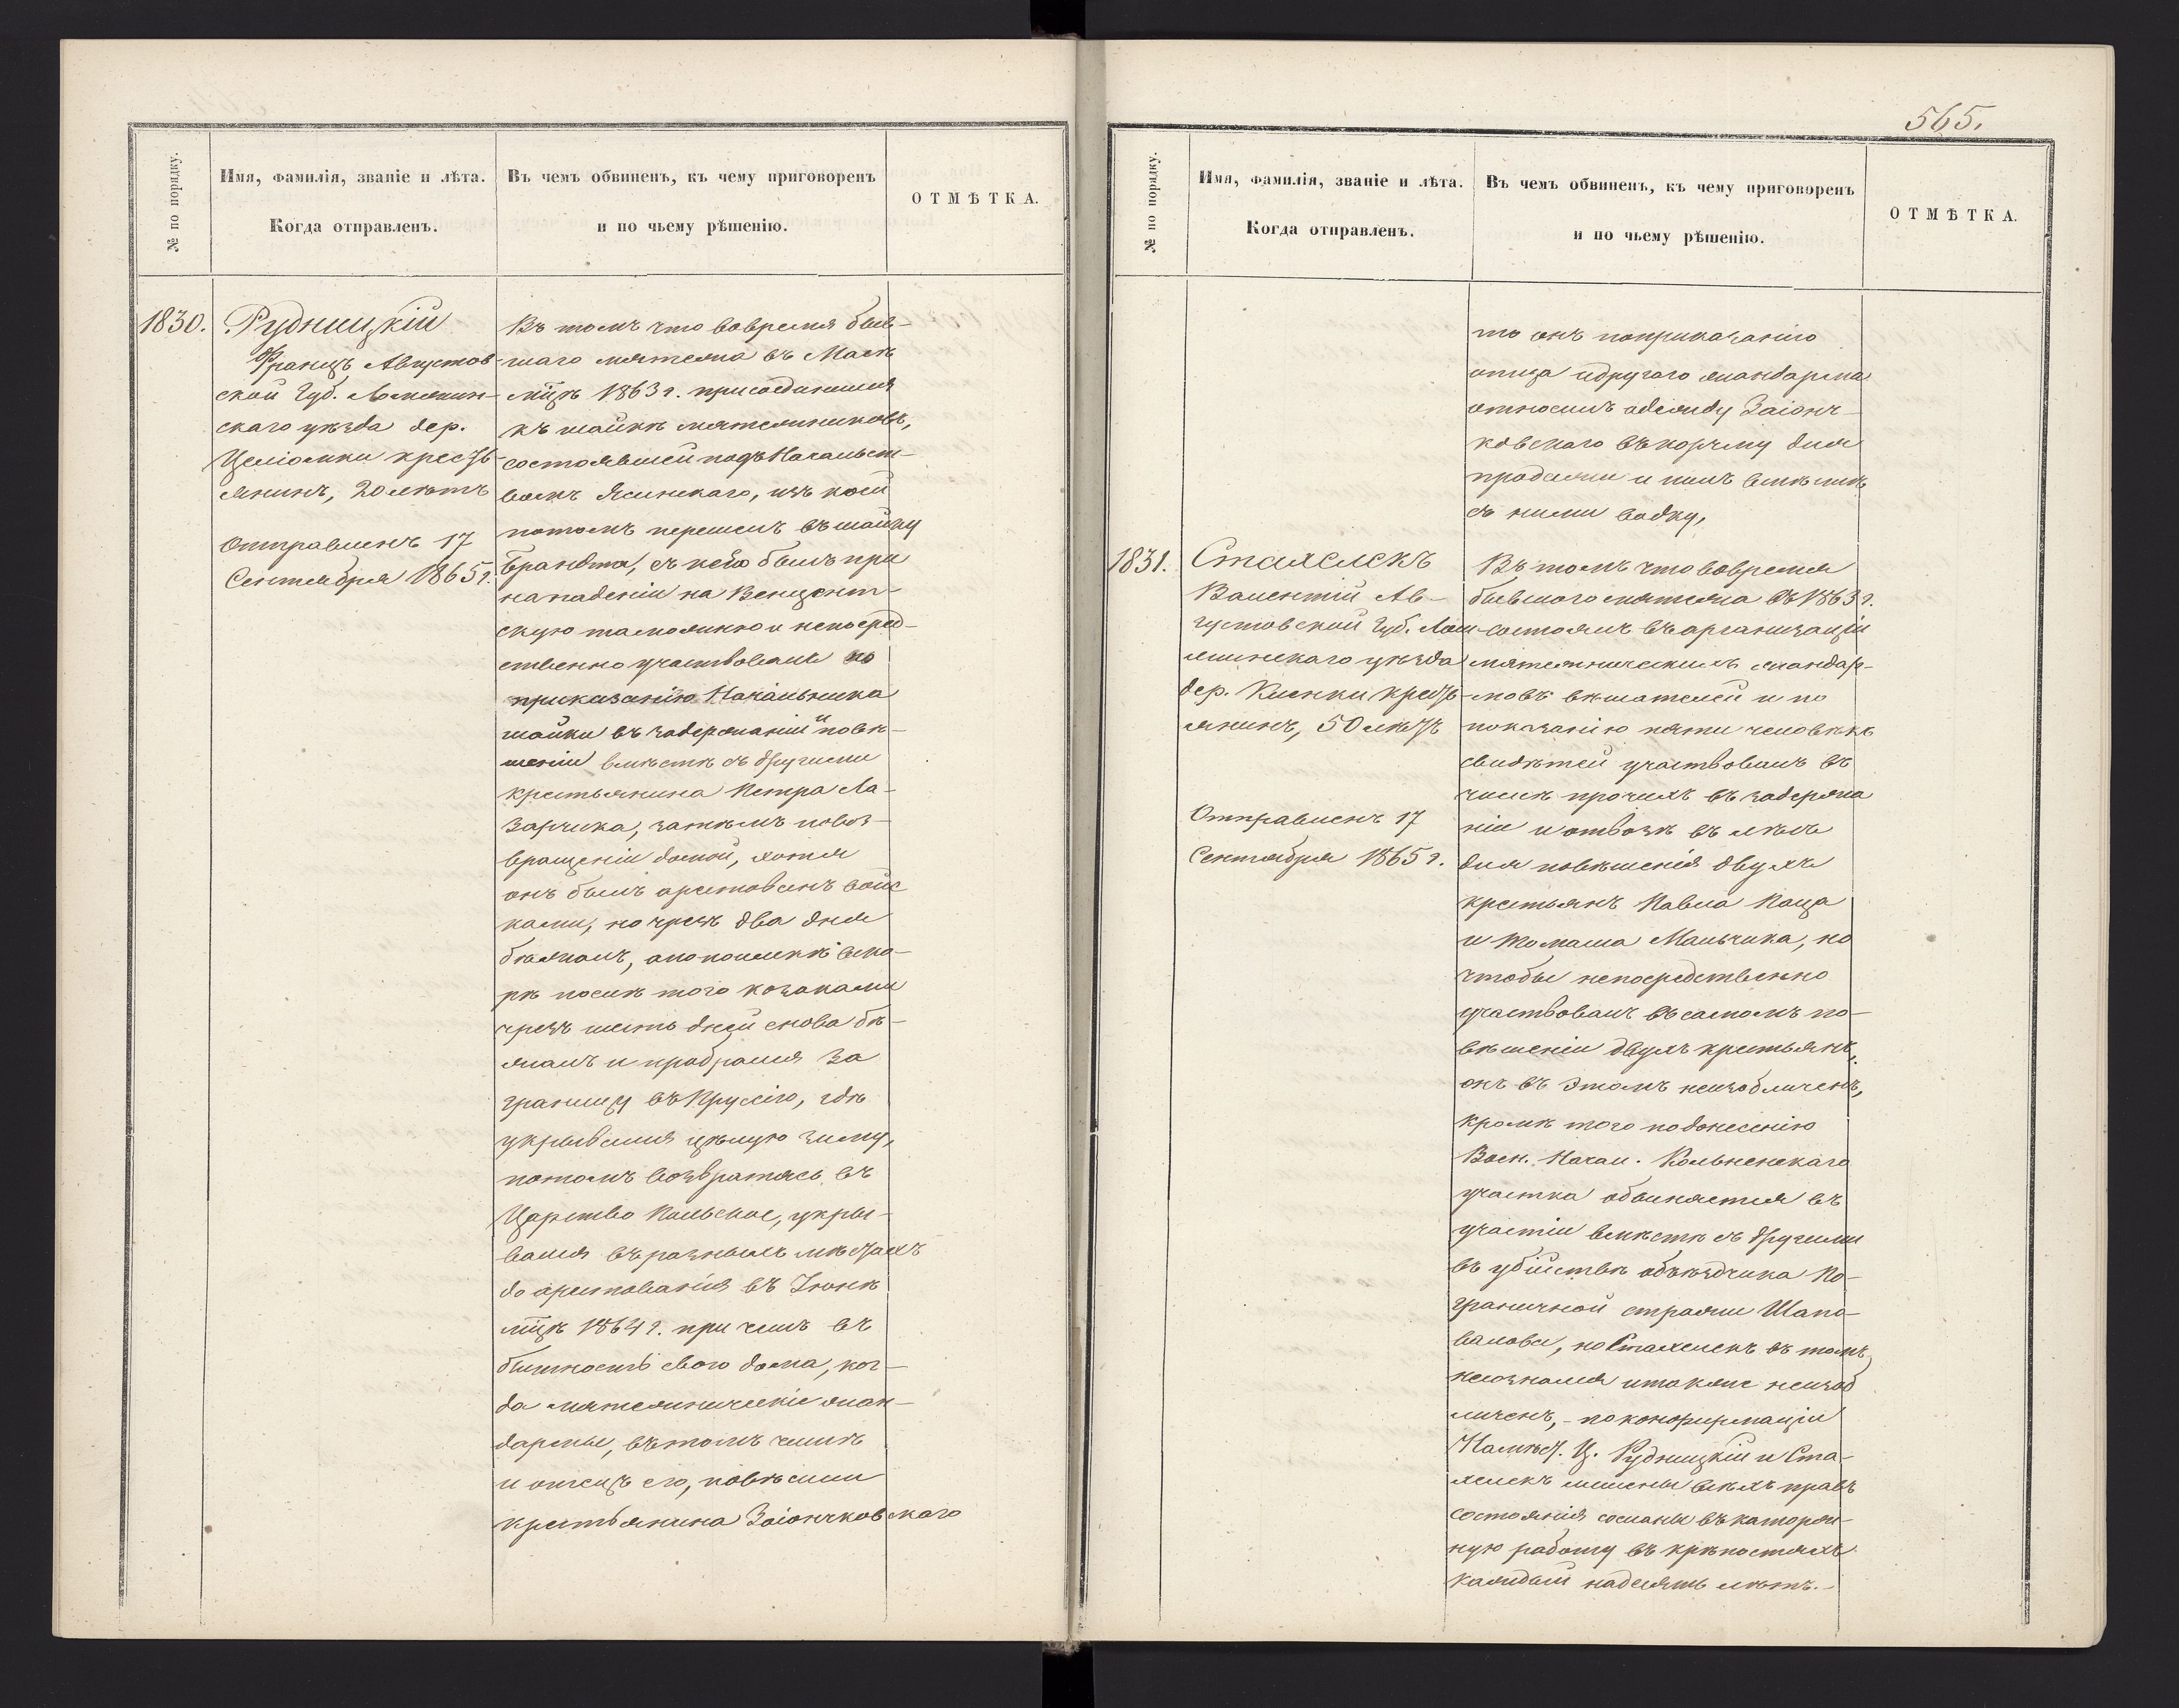 565.
№ по порядку.
Имя, фамилія, званіе и лѣта.
Когда отправленъ.
Въ чемъ обвиненъ, къ чему приговоренъ
и по чьему рѣшенію.
ОТМѢТКА.
1830.
Рудницкій
Францъ Августов-
ской Губ. Ломжин-
скаго уѣзда дер.
крестъ-
янинъ, 20 лѣтъ
Отправленъ 17
Сентября 1865 г.
Въ томъ что вовремя быв-
шаго мятежа въ Маѣ
мцѣ 1863 г. присоединился
къ шайкѣ мятежниковъ,
состоявшей подъ Начальст-
вомъ Ясинскаго, изъ коей
потомъ перешелъ въ шайку
Брандта, съ кѣю былъ при
нападеніи на Венцент-
скую таможню и непосред-
ственно участвовалъ по
приказанію Начальника
шайки въ задержаніи и повѣ-
шеніи вмѣстѣ съ другими
крестьянина Петра Ла-
зарчика, затѣмъ повоз-
вращеніи домой, хотя
онъ былъ арестованъ войс
ками, но чрезъ два дня
бѣжалъ, а по поимкѣ вско-
рѣ послѣ того козаками
чрезъ шесть дней снова бѣ-
жалъ и пробрался за
границу въ Пруссію, гдѣ
укрывался цѣлую зиму,
потомъ возвратясь въ
Царство Польское, укры-
вался въ разныхъ мѣстахъ
до арестованія въ Іюнѣ
мцѣ 1864 г. при чемъ въ
бытность свою дома, ког-
да мятежническіе жан-
дармы, въ томъ числѣ
и отецъ его, повѣсили
крестьянина Заіончковскаго
№ по порядку.
Имя, фамилія, званіе и лѣта.
Когда отправленъ.
Въ чемъ обвиненъ, къ чему приговоренъ
и по чьему рѣшенію.
ОТМѢТКА.
то онъ поприказанію
отца идругаго жандарма
относилъ одежду Заіонч-
ковскаго въ корчму для
продажи и пилъ вмѣстѣ
съ ними водку,
1831.
Стахелекъ
Валентій Ав-
густовской Губ. Лом-
жинскаго уѣзда
дер. крестъ-
янинъ, 50 лѣтъ
Отправленъ 17
Сентября 1865 г.
Въ томъ что вовремя
бывшаго мятежа въ 1863 г.
состоялъ въ организаціи
мятежническихъ жандар-
мовъ вѣшателей и по
показанію пяти человѣкъ
свидѣтей участвовалъ въ
числѣ прочихъ въ задержа
ніи и отвозѣ въ лѣсъ
для повѣшенія двухъ
крестьянъ Павла Паца
и Томаша Мальчика, но
чтобы непосредственно
участвовалъ въ самомъ по-
вѣшеніи двухъ крестьянъ,
онъ въ этомъ неизобличенъ,
кромѣ того по донесенію
Воен. Начал. Кольненскаго
участка обвиняется въ
участіи вмѣстѣ съ другими
въ убійствѣ объѣздчика По-
граничной стражи Шапо-
валова, но Стахелекъ въ томъ
несознался итакже неизоб
личенъ, - по конфирмаціи
Намѣст. Ц. Рудницкій и Ста-
хелекъ лишены всѣхъ правъ
состоянія сосланы въ каторж-
ную работу въ крѣпостяхъ
каждый надесять лѣтъ.-